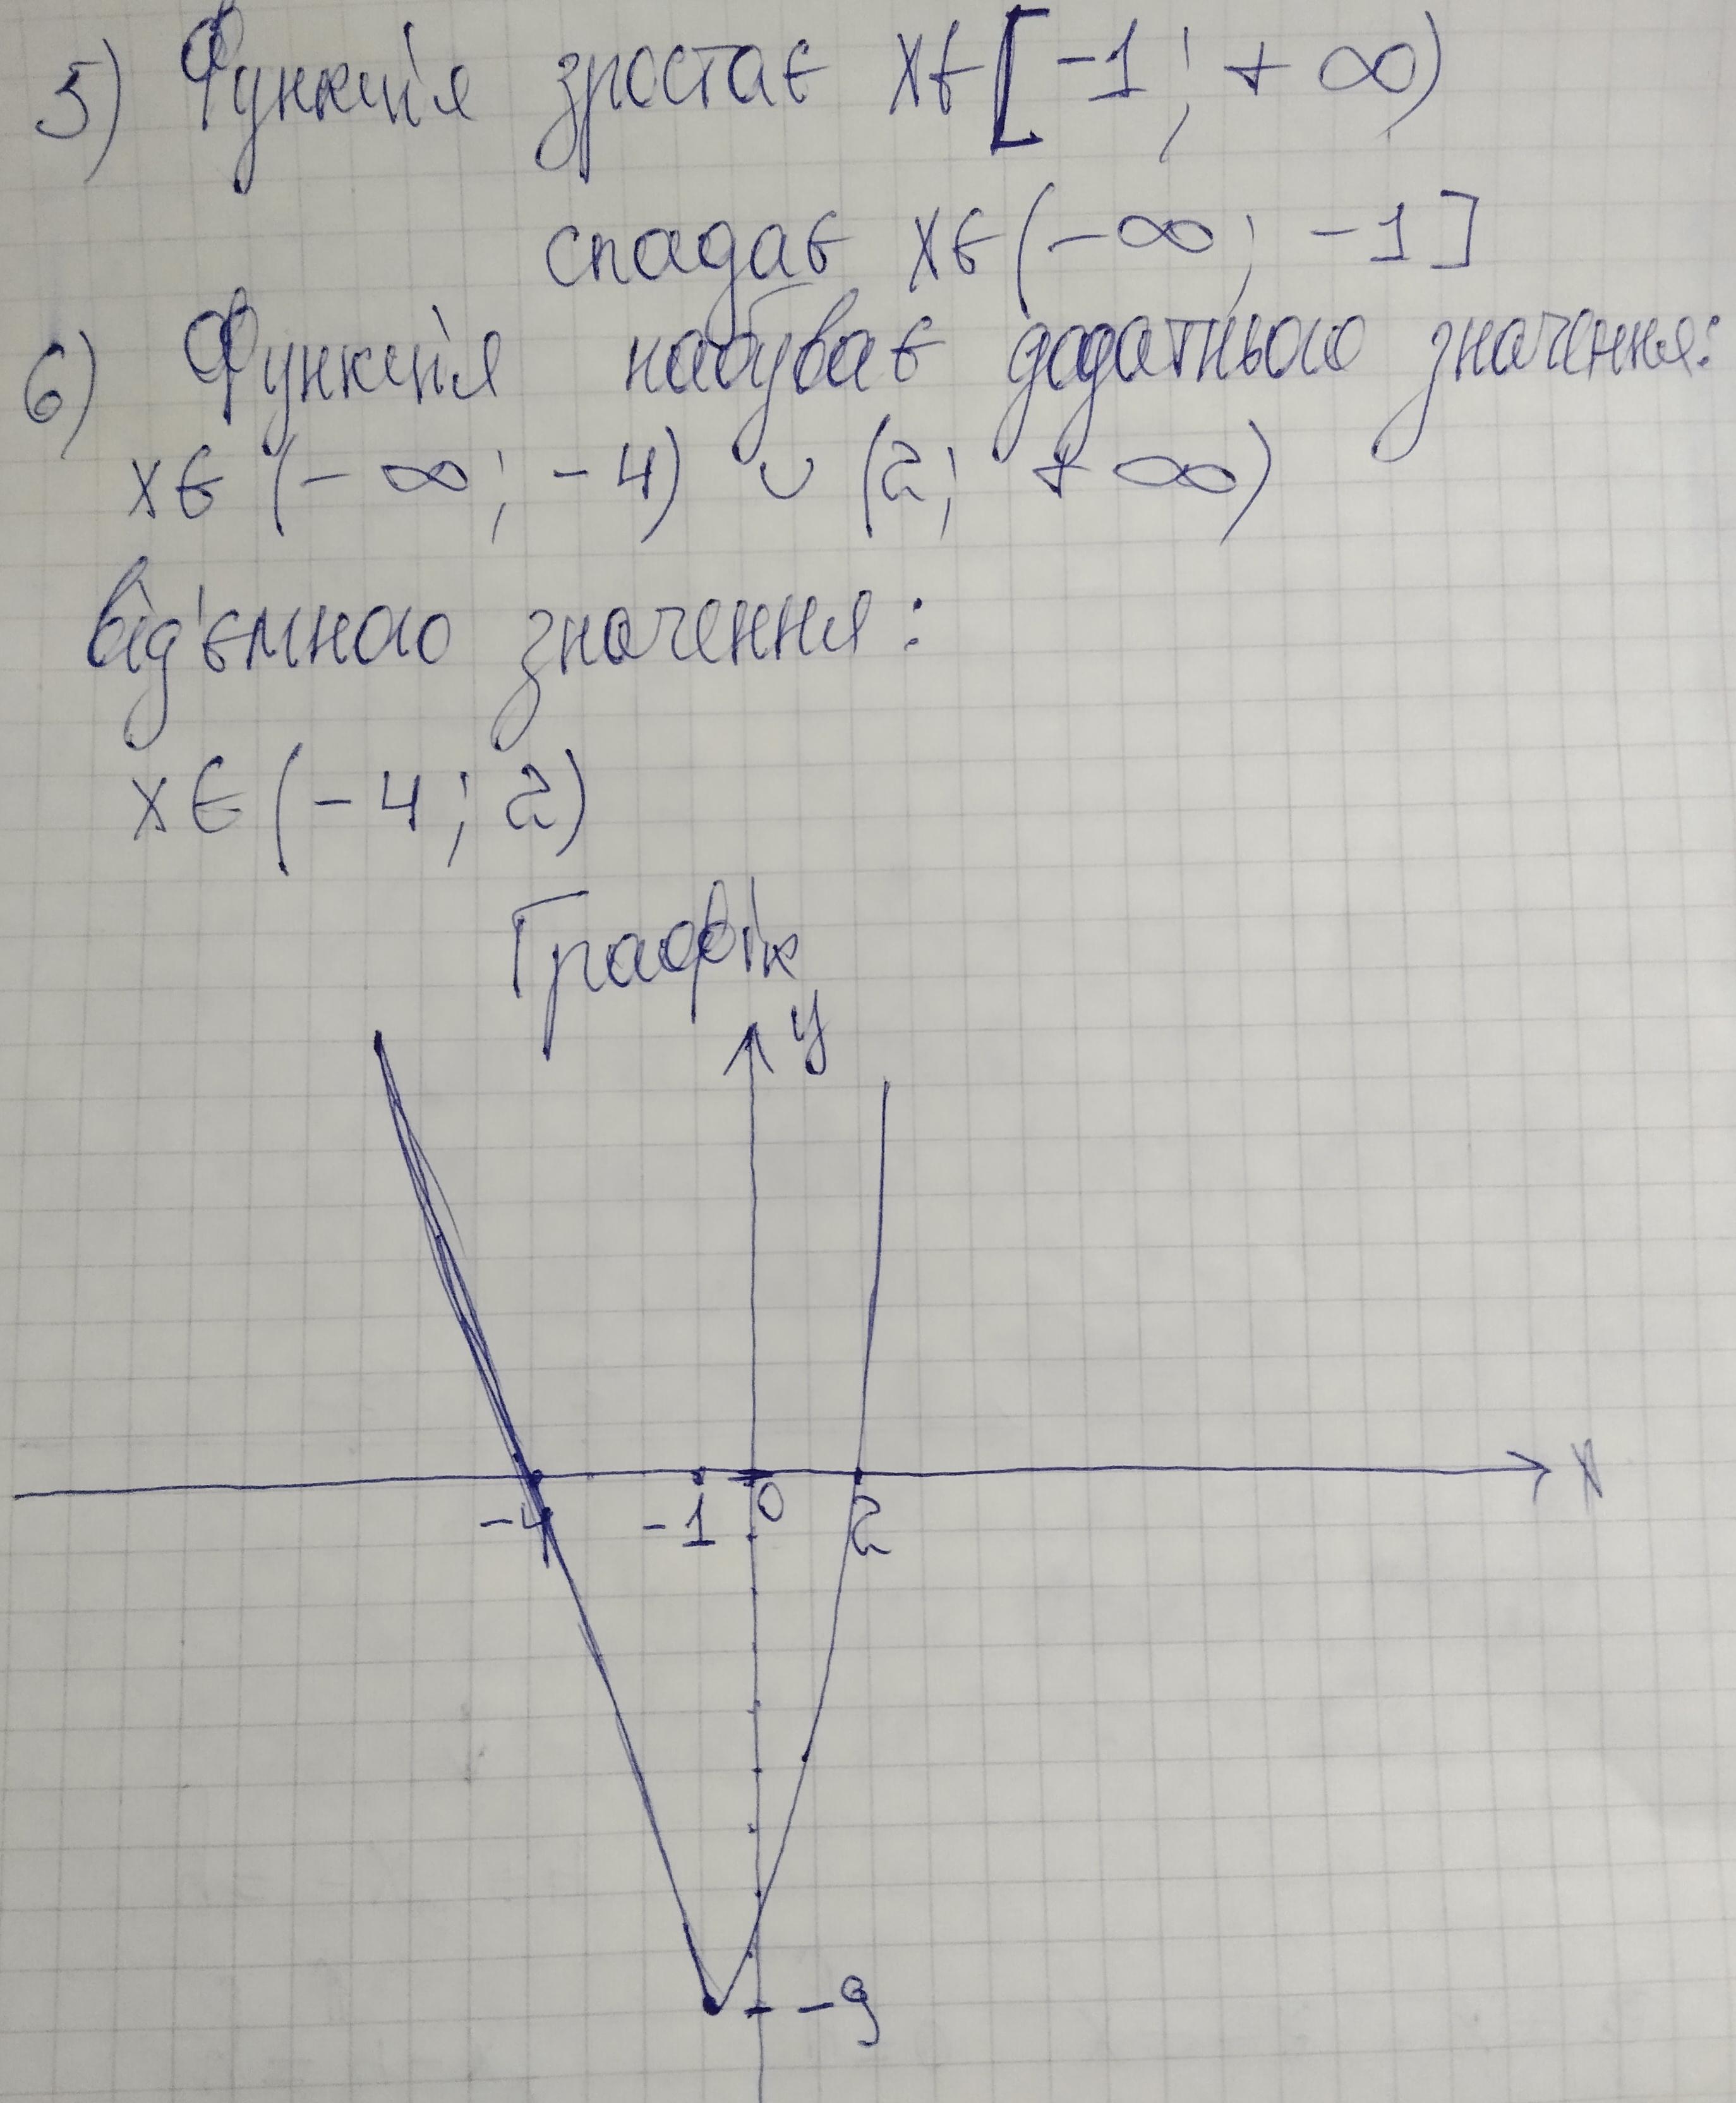 5) Функція зростає x∈[-1; +∞)
спадає x∈(-∞; -1]
6) Функція набуває додатнього значення:
x∈ (-∞; -4) ∪ (2; +∞)
від'ємного значення:
x∈(-4; 2)
Графік
y
-4 -1 0 2 x
-9